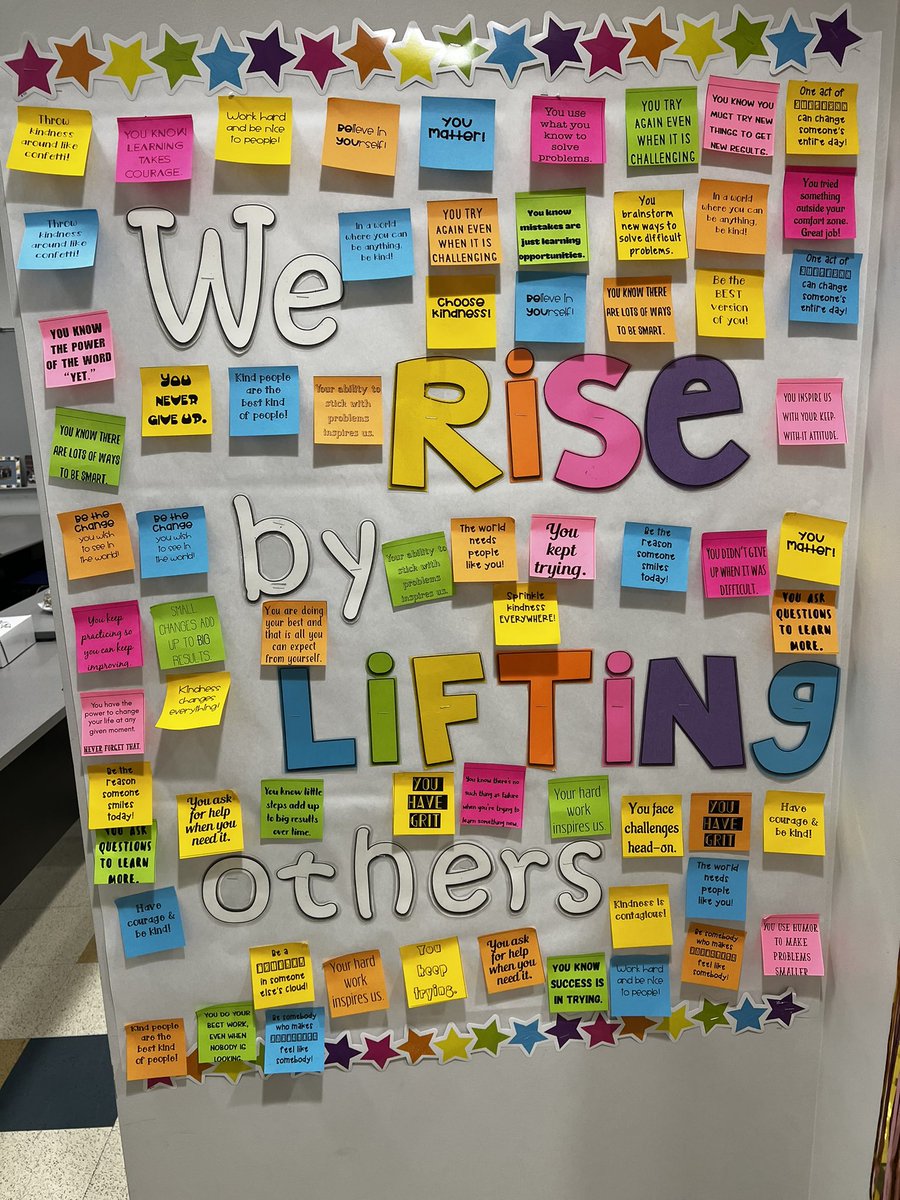 Throw
kindness
around like
confetti!
YOU KNOW
LEARNING
TAKES
COURAGE.
Work hard
and be nice
to people!
Believe in
yourself!
You
Matter!
You use
what you
know to
solve
problems.
YOU TRY
AGAIN EVEN
WHEN IT IS
CHALLENGING
YOU KNOW YOU
MUST TRY NEW
THINGS TO GET
NEW RESULTS.
One act of
can change
someone's
entire day!
Throw
kindness
around like
confetti!
We
In a world
where you can
be anything,
be kind!
YOU TRY
AGAIN EVEN
WHEN IT IS
CHALLENGING
You know
mistakes are
just learning
opportunities.
You
brainstorm
new ways to
solve difficult
problems.
In a world
where you can
be anything,
be kind!
You tried
something
outside your
comfort zone.
Great job!
Choose
kindness!
Believe in
yourself!
YOU KNOW THERE
ARE LOTS OF WAYS
TO BE SMART.
Be the
BEST
version
of you!
One act of
can change
someone's
entire day!
YOU KNOW
THE POWER
OF THE WORD
"YET."
YOU
NEVER
GIVE UP.
Kind people
are the
best kind
of people!
Your ability to
stick with
problems
inspires us.
RiSe
YOU INSPIRE US
WITH YOUR KEEP-
WITH-IT ATTITUDE.
YOU KNOW THERE
ARE LOTS OF WAYS
TO BE SMART.
Be the
Change
you wish
to see in
the world!
Be the
Change
you wish
to see in
the world!
by
Your ability to
stick with
problems
inspires us.
The world
needs
people
like you!
You
kept
trying.
Be the
reason
someone
smiles
today!
YOU DIDN'T GIVE
UP WHEN IT WAS
DIFFICULT.
You
Matter!
You keep
practicing so
you can keep
improving.
SMALL
CHANGES ADD
UP TO BIG
RESULTS.
You are doing
your best and
that is all you
can expect
from yourself.
Sprinkle
kindness
EVERYWHERE!
YOU ASK
QUESTIONS
TO LEARN
MORE.
You have the
power to change
your life at any
given moment.
NEVER FORGET THAT.
Kindness
changes
everything!
LiFTiNg
Be the
reason
someone
smiles
today!
You ask
for help
when you
need it.
You know little
steps add up
to big results
over time.
YOU
HAVE
GRIT
You know there's no
such thing as failure
when you're trying to
learn something new.
Your hard
work
inspires us
You face
challenges
head-on.
YOU
HAVE
GRIT
Have
courage &
be kind!
YOU ASK
QUESTIONS
TO LEARN
MORE.
others
The world
needs
people
like you!
Have
courage &
be kind!
Kindness is
contagious!
Be a
in someone
else's cloud!
Your hard
work
inspires us.
You
keep
trying.
You ask
for help
when you
need it.
YOU KNOW
SUCCESS IS
IN TRYING.
Work hard
and be nice
to people!
Be somebody
who makes
feel like
somebody!
YOU USE HUMOR
TO MAKE
PROBLEMS
SMALLER
Kind people
are the
best kind
of people!
YOU DO YOUR
BEST WORK,
EVEN WHEN
NOBODY IS
LOOKING.
Be somebody
who makes
feel like
somebody!